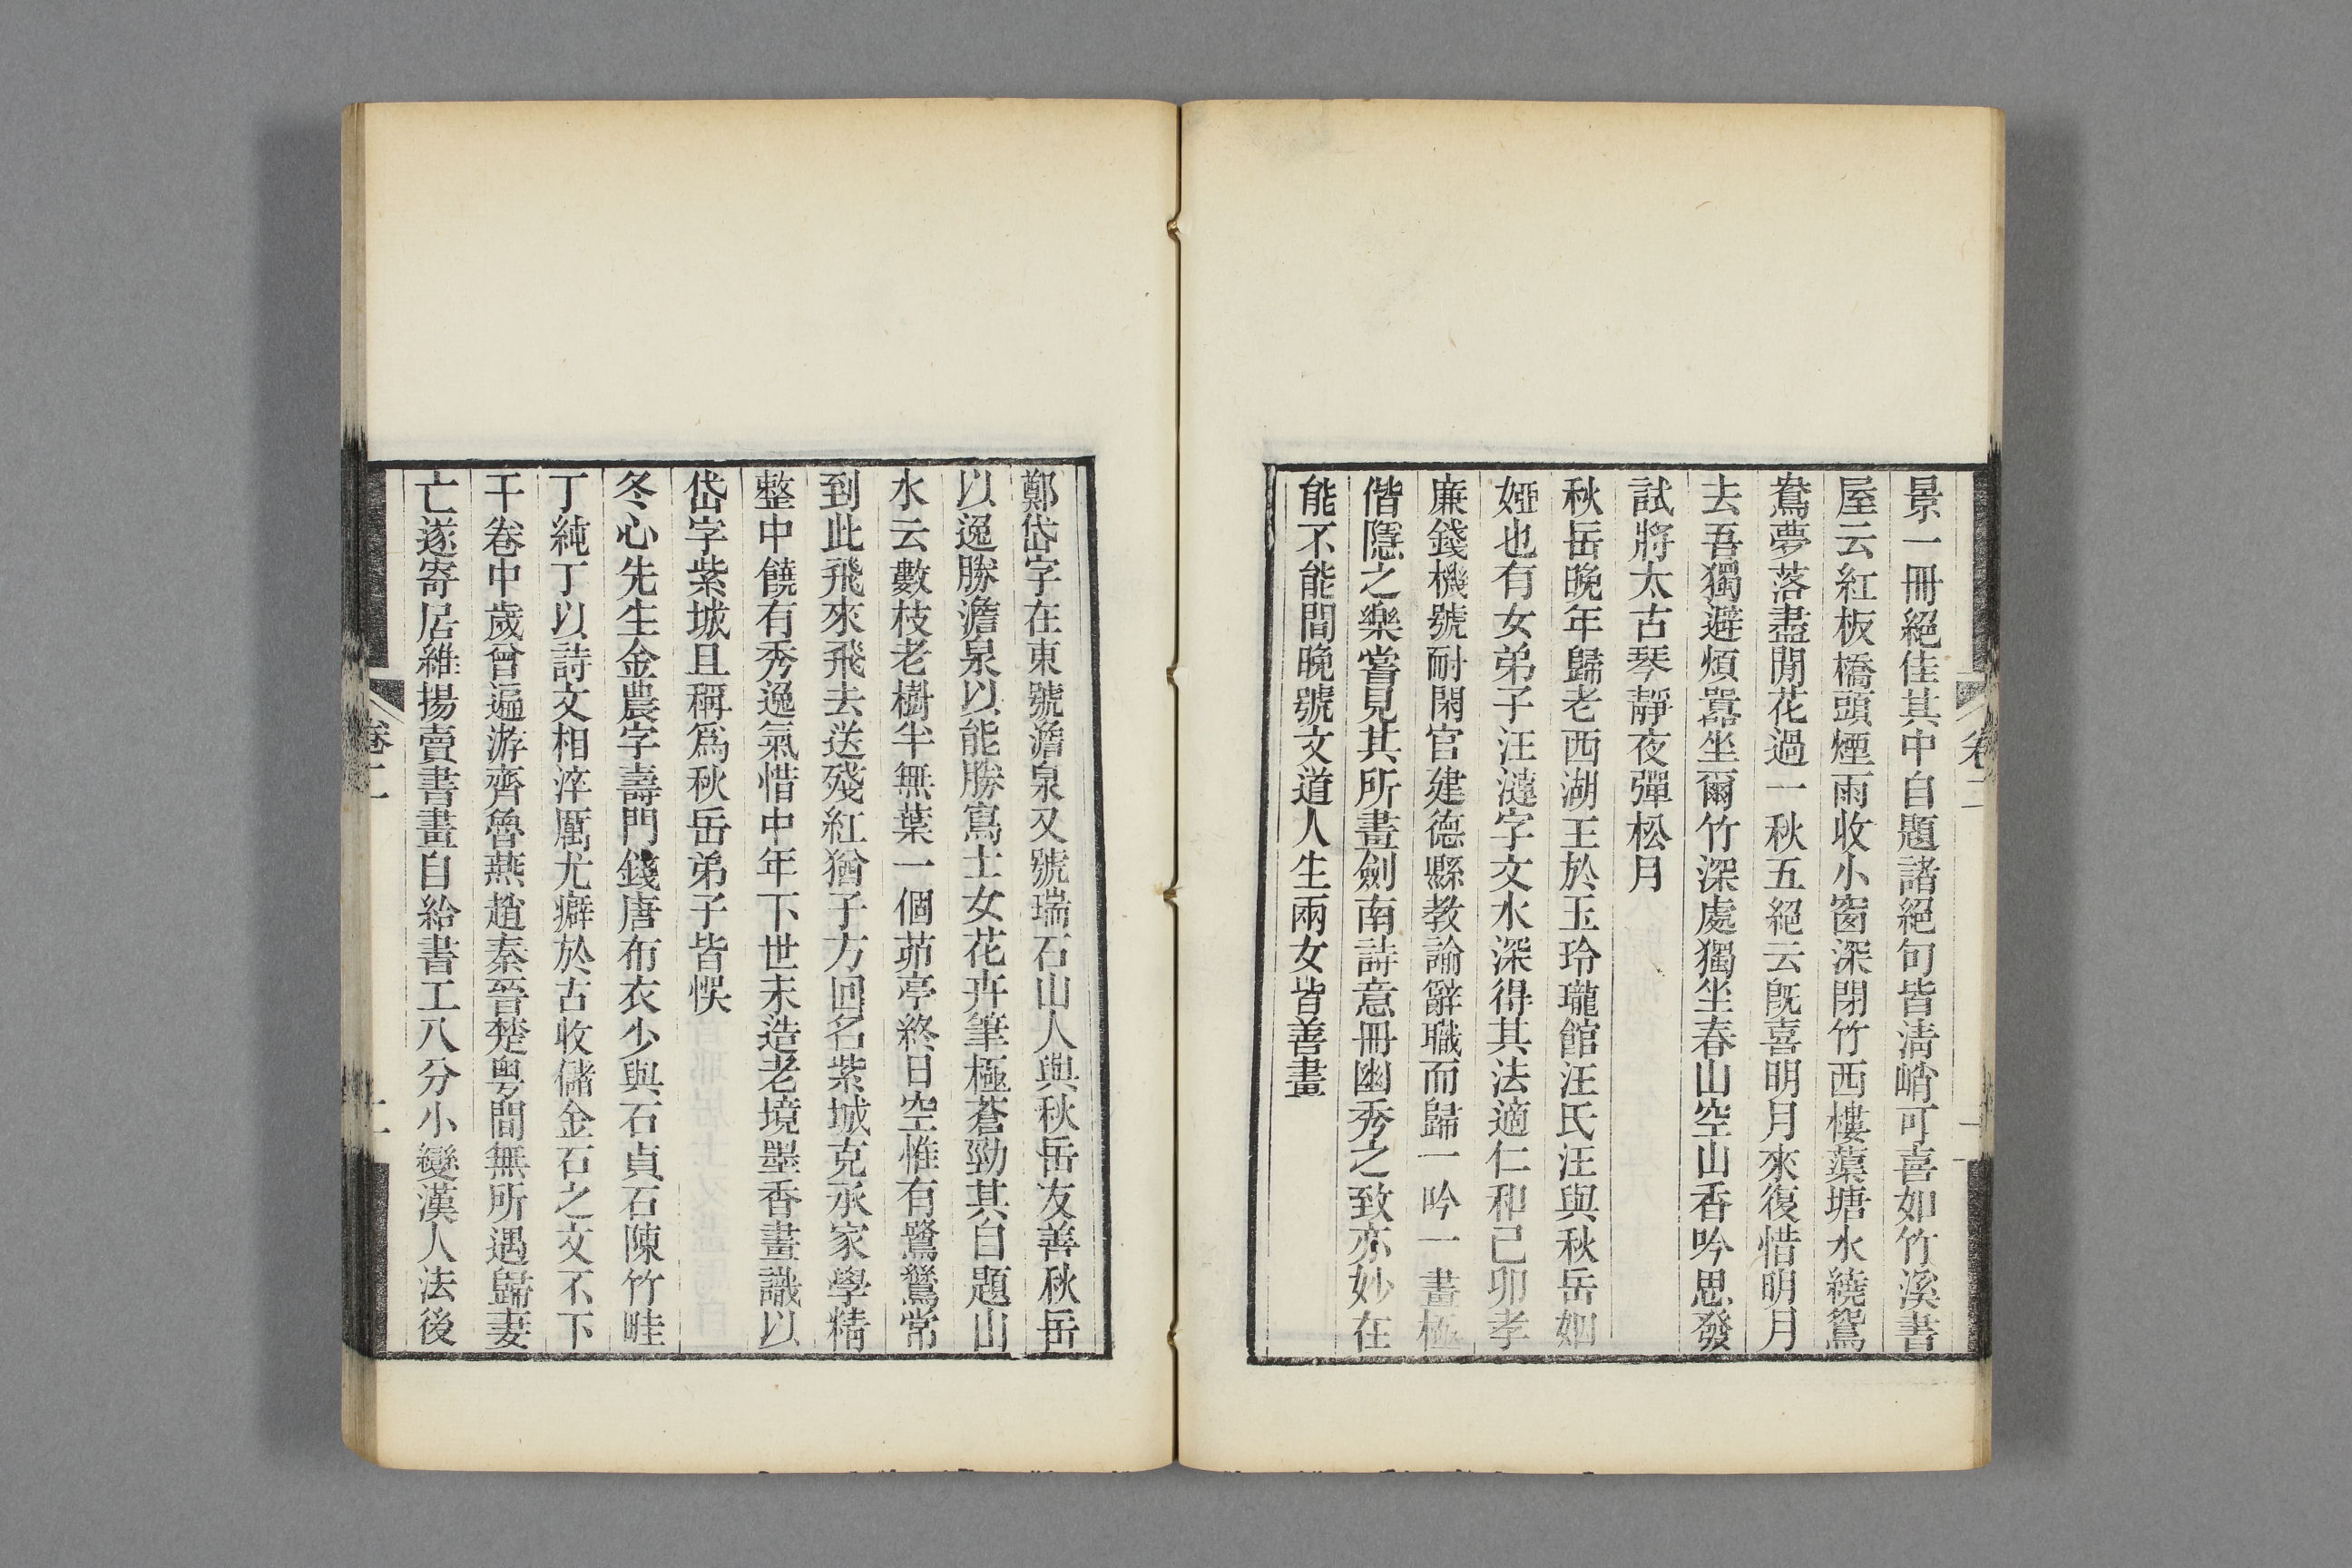 景一冊絕佳其中自題諸絕句皆淸峭可喜如竹溪書
屋云紅板橋頭煙雨收小窗深閉竹西樓蕖塘水繞鴛
鴦夢落盡閒花過一秋五絕云旣喜明月來復惜明月
去吾獨避煩囂坐爾竹深處獨坐春山空山香吟思發
試將太古琴靜夜彈松月
秋岳晚年歸老西湖王於玉玲瓏館汪氏汪與秋岳姻
婭也有女弟子汪漣字文水深得其法適仁和己卯孝
廉錢機號耐閑官建德縣教諭辭職而歸一吟一畫極
偕隱之樂嘗見其所畫劍南詩意冊幽秀之致亦妙在
能不能間晚號文道人生兩女皆善畫
卷二
鄭岱字在東號澹泉又號瑞石山人與秋岳友善秋岳
以逸勝澹泉以能勝寫士女花卉筆極蒼勁其自題山
水云數枝老樹半無葉一個茆亭終日空惟有鷺鷥常
到此飛來飛去送殘紅猶子方回名紫城克承家學精
整中饒有秀逸氣惜中年下世未造老境墨香畫識以
岱字紫城且稱爲秋岳弟子皆悞
冬心先生金農字壽門錢唐布衣少與石貞石陳竹畦
丁純丁以詩文相淬厲尤癖於古收儲金石之文不下
千卷中歲曾遍游齊魯燕趙秦晉楚粵間無所遇歸妻
亡遂寄居維揚賣書畫自給書工八分小變漢人法後
卷二